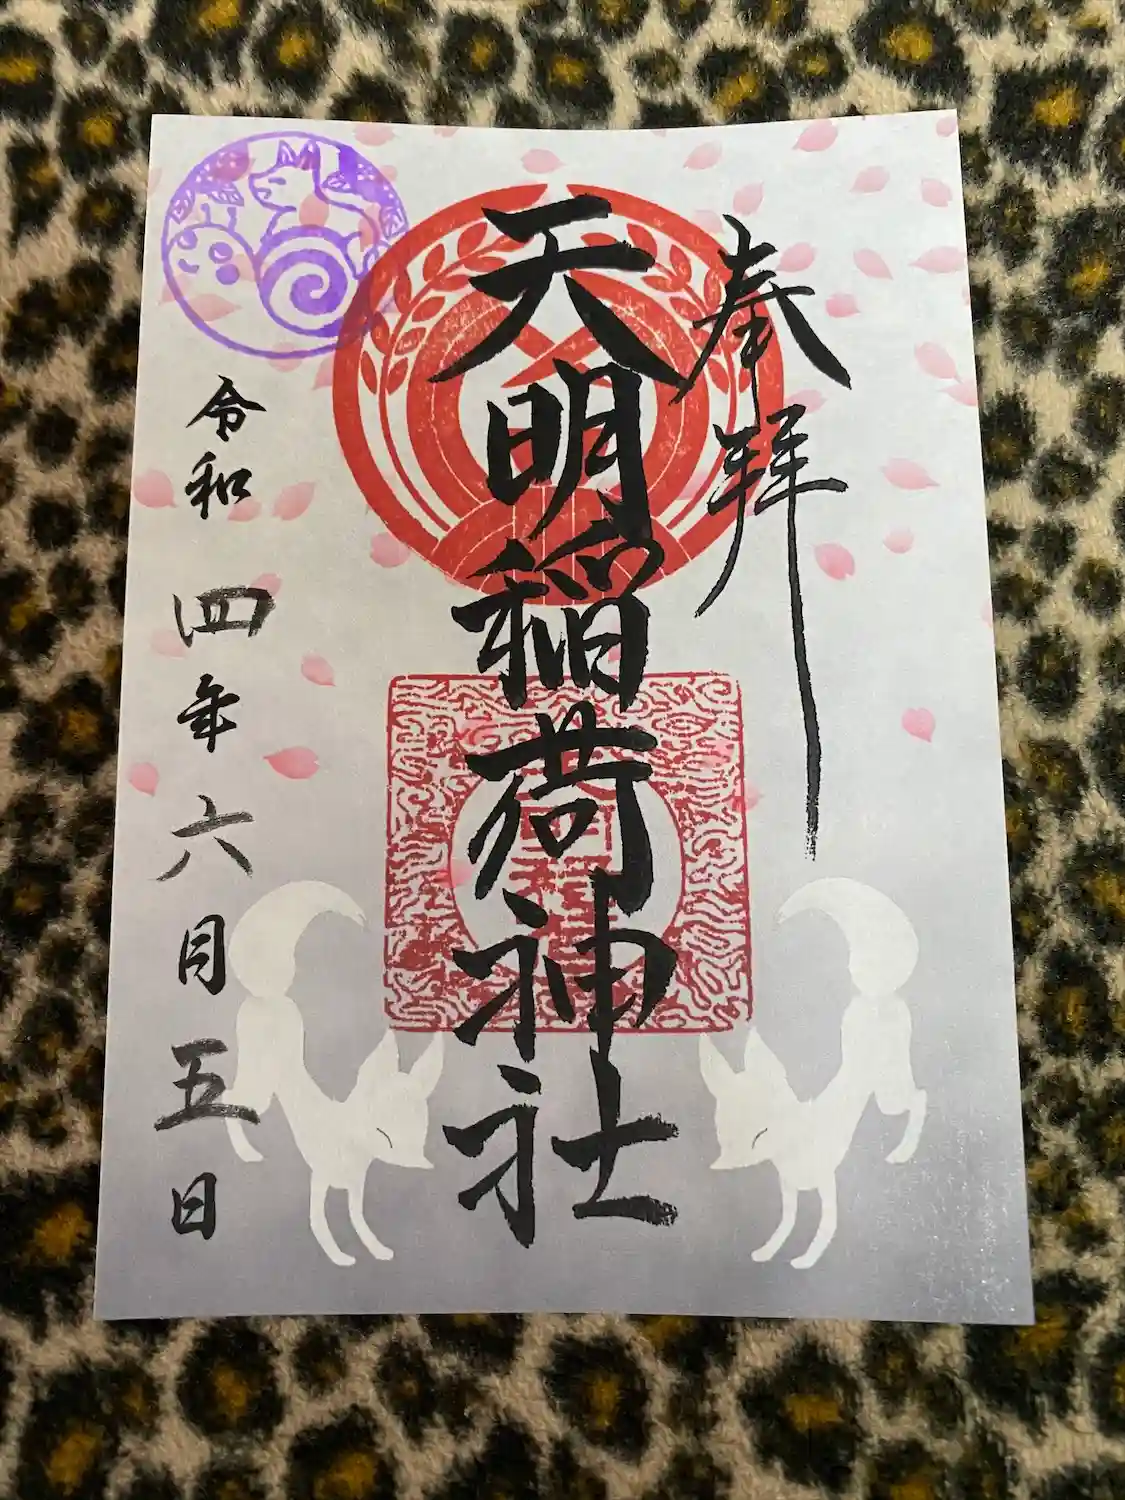 奉拝
天明稲荷神社
令和四年六月五日